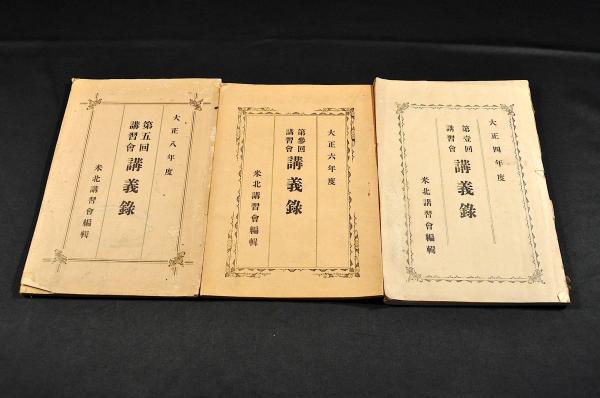 大正八年度
第五回
講習會
講義錄
米北講習會編輯
大正六年度
第參回
講習會
講義錄
米北講習會編輯
大正四年度
第壹回
講習會
講義錄
米北講習會編輯